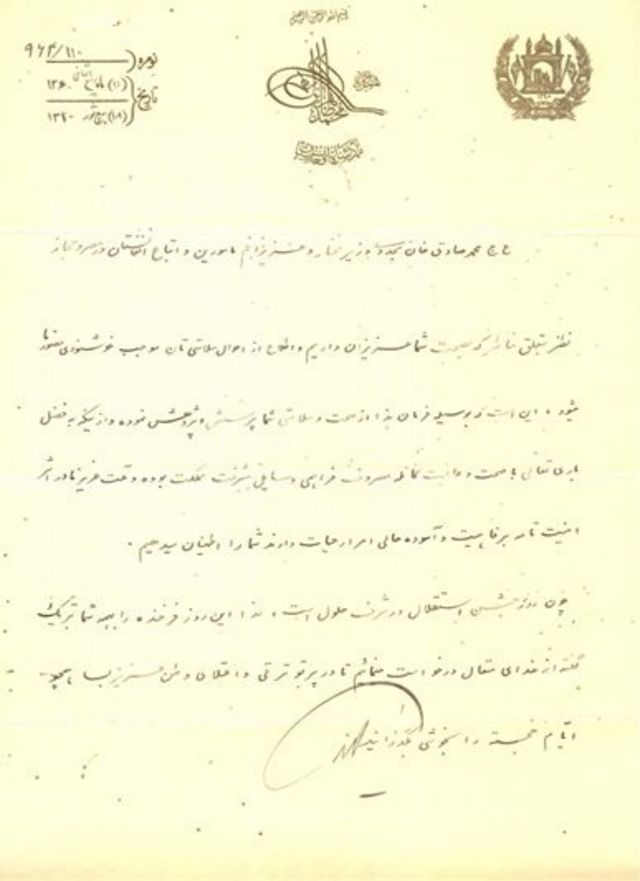 بسم الله الرحمن الرحیم
نمره ۹۶۴/۱۱۰
تاریخ (۱۱) ۱۳۶۰
(۱۸) ۱۳۲۰
محمد صادق خان مجددی وزیر مختار و عزیزانم مامورین و اتباع افغانستان در مصر و حجاز
نظر بتعلق خاطر که بصحت شما عزیزان داریم و اطلاع از احوال سلامتی تان موجب خوشنودی حضور ما
میشود، این است که بوسیله فرمان هذا از صحت و سلامتی شما پرسش و پژوهش نموده و از اینکه به فضل
باری تعالی با صحت و عافیت کامله مصروف فراهمی وسایل پیشرفت مملکت بوده و ملت عزیز ما در اثر
امنیت تامه برفاهیت و آسوده حالی امرار حیات دارند شما را اطمینان میدهیم .
چون روز جشن استقلال در شرف حلول است، لذا این روز فرخنده را بهمه شما تبریک
گفته از خدای متعال درخواست مینمائیم تا در پرتو ترقی و اعتلای وطن عزیز بسا همچو
ایام خجسته را بخوشی بگذرانید